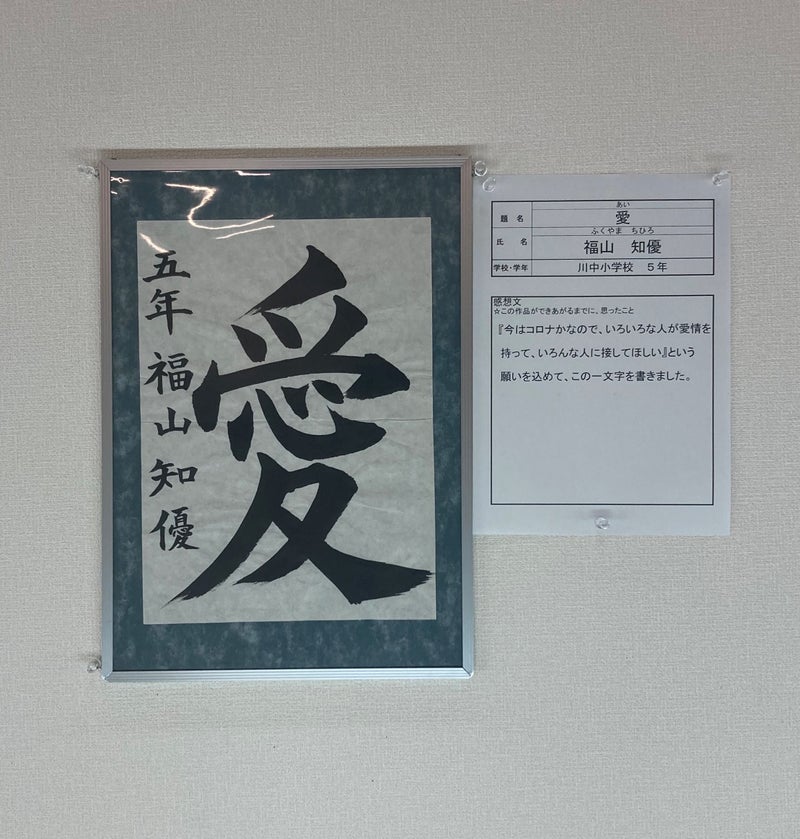 愛
五年 福山知優
あい
題 名 愛
ふくやま ちひろ
氏 名 福山 知優
学校・学年 川中小学校 5年
感想文
☆この作品ができあがるまでに、思ったこと
『今はコロナかなので、いろいろな人が愛情を
持って、いろんな人に接してほしい』という
願いを込めて、この一文字を書きました。